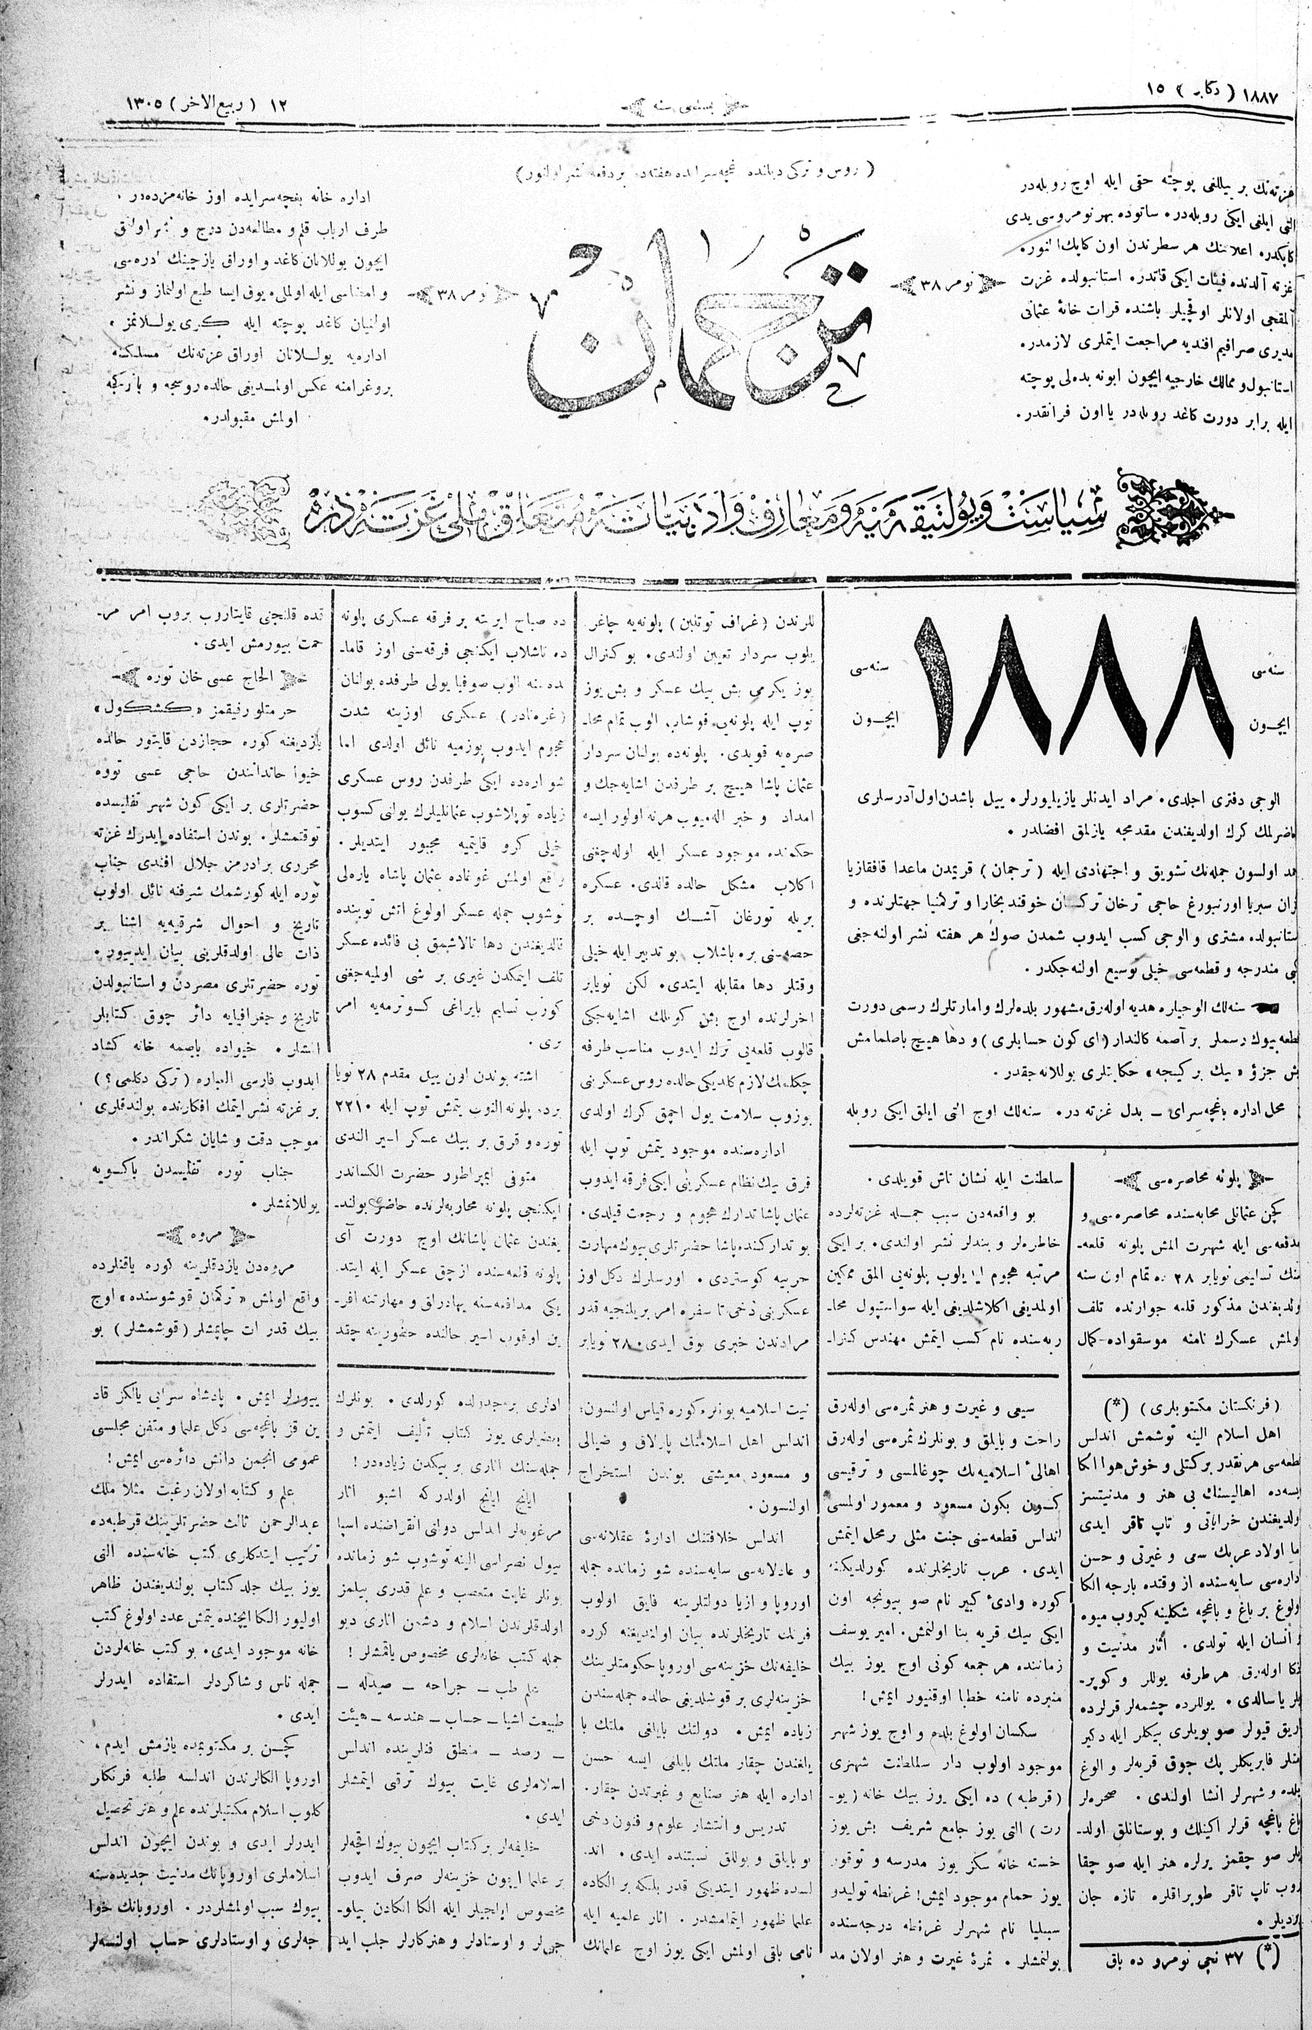 ١٨٨٧ ( دكابر ) ١٥
بشنجى سنه
١٢ ( ربيع الاخر ) ١٣٠٥
( روس و تركى دياننده بغچه‌سرايده هفته‌ده بر دفعه نشر اولنور )
غزته‌نك بر ييللغى پوچته حقى ايله اوچ روبله‌در
التى ايلغى ايكى روبله‌در. ساتوده بهر نومروسى يدى
كاپكدر. اعلاننك هر سطرندن اون كاپك النور.
غزته آلدنده فيئات ايكى قاتدر. استانبولده غزت
آلمقجى اولانلر اوقچيلر باشنده قرات خانهٔ عثمانى
مديرى صرافيم افنديه مراجعت ايتملرى لازمدر.
استانبول و ممالك خارجيه ايچون ابونه بدلى پوچته
ايله برابر دورت كاغد روبله‌در يا اون فرانقدر.
نومر ٣٨
ترجمان
نومر ٣٨
اداره خانه بغچه‌سرايده اوز خانه‌مزده‌در.
طرف ارباب قلم و مطالعه‌دن درج و نشر اولنق
ايچون يوللانان كاغد و اوراق يازجينك ادره‌سى
و امضاسى ايله اولملى. يوق ايسا طبع اولنماز و نشر
اولنيان كاغد پوچته ايله كرى يوللانمز.
اداره‌يه يوللانان اوراق غزته‌نك مسلكنه
پروغرامنه عكس اولمديغى حالده روسچه و يا تركچه
اولمش مقبولدر.
سياست و پولتيقه‌يه و معارف و ادبياته متعلق ملى غزته‌در
سنه‌سى ايچون ١٨٨٨ سنه‌سى ايچون
الوجى دفترى اچلدى. مراد ايدنلر يازيليورلر. ييل باشدن اول آدرسلرى
حاضرلمك كرك اولديغندن مقدمجه يازلمق افضلدر.
حمد اولسون جمله‌نك تشويق و اجتهادى ايله ( ترجمان ) قريمدن ماعدا قافقازيا
قزان سبريا اورنبورغ حاجى ترخان تركستان خوقند بخارا و تركمنيا جهتلرنده و
استانبولده مشترى و الوجى كسب ايدوب شمدن صوك هر هفته نشر اولنه‌جغى
كبى مندرجه و قطعه‌سى خيلى توسيع اولنه‌جكدر.
سنه‌لك الوجياره هديه اوله‌رق مشهور بلده‌لرك و امارتلرك رسمى دورت
قطعه بيوك رسملر بر آصمه كالندار ( اى كون حسابلرى ) و دها هيچ باصلمامش
بش جزؤ « بيك بر كيجه » حكايتلرى يوللانه‌جقدر.
محل اداره باغچه‌سراى ـ بدل غزته در. سنه‌لك اوچ التى ايلق ايكى روبله
پلونه محاصره‌سى
كچن عثمانلى محابه‌سنده محاصره‌سى و
مدفعه‌سى ايله شهرت المش پلونه قلعه‌ـ
سنك تسليمى نويابر ٢٨ ده تمام اون سنه
اولديغندن مذكور قلعه جوارنده تلف
اولمش عسكرك نامنه موسقواده كمال
سلطنت ايله نشان تاش قويلدى.
بو واقعه‌دن سبب جمله غزته‌لرده
خاطره‌لر و بندلر نشر اولندى. بر ايكى
مرتبه هجوم ايله پلونه‌يى المق ممكن
اولمديغى اكلاشلديغى ايله سواستپول محا‌ـ
ربه‌سنده نام كسب ايتمش مهندس كنرا‌ـ
للرندن ( غراف توتلبن ) پلونه‌يه چاغر‌
يلوب سردار تعيين اولندى. بو كنرال
يوز يكرمى بش بيك عسكر و بش يوز
توپ ايله پلونه‌يى قوشار‌ الوب تمام محا‌ـ
صره‌يه قويدى. پلونه‌ده بولنان سردار
عثمان پاشا هيچ بر طرفدن اشايه‌جك و
امداد و خبر اله‌ميوب هرنه اولور ايسه
حكمنده موجود عسكر ايله اوله‌جغنى
اكلاب مشكل حالده قالدى. عسكره
بريله تورغان آشك اوچده بر
حصه‌سنى بره باشلاب بو تدبير ايله خيلى
وقتلر دها مقابله ايتدى. لكن نويابر
اخرلرنده اوچ بش كونلك اشايه‌جكى
قالوب قلعه‌يى ترك ايدوب مناسب طرفه
چكلمك لازم كلديكى حالده روس عسكرنى
يوزوب سلامت يول اچمق كرك اولدى
اداره‌سنده موجود يتمش توپ ايله
قرق بيك نظام عسكرينى ايكى فرقه ايدوب
عثمان پاشا تدارك هجوم و رجعت قيلدى.
بو تدارككنده پاشا حضرتلرى بيوك مهارت
حربيه كوستردى. اورسلرك دكل اوز
عسكرينى دخى تا سفره امر بريلنجيه قدر
مرادندن خبرى يوق ايدى. ٢٨ نويابر
ده صباح ايرته بر فرقه عسكرى پلونه
ده تاشلاب ايكنجى فرقه‌سنى اوز قاما‌ـ
نده‌سنه الوب صوفيا يولى طرفده بولنان
( غره‌نادر ) عسكرى اوزينه شدت
هجوم ايدوب بوزميه نائل اولدى اما
شو اراده ايكى طرفدن روس عسكرى
زياده توپلاشوب عثمانليلرك يولنى كسوب
خيلى كرو قايتميه مجبور ايتديلر.
واقع اولمش غوغاده عثمان پاشاه ياره‌لى
توشوب جمله عسكر اولوغ اتش توبنده
قالديغندن دها تالاشمق بى فائده عسكر
تلف ايتمكدن غيرى بر شى اولميه‌جغنى
كورب تسليم بايراغى كوترمه‌يه امر
بردى.
اشته بوندن اون ييل مقدم ٢٨ نويا‌
برده پلونه النوب يتمش توپ ايله ٢٢١٠
توره و قرق بر بيك عسكر اسير الندى
متوفى ايمپراطور حضرت الكساندر
ايكنجى پلونه محاربه‌لرنده حاضر بولند‌ـ
يغندن عثمان پاشانك اوچ دورت آى
پلونه قلعه‌سنده ازچق عسكر ايله ايتد‌
يكى مدافعه‌سنه بهادرلق و مهارتنه افر‌ـ
ين اوقوب اسير حالنده حضورينه چقد
تده قلنچنى قايتاروب بروب امر مر‌ـ
حمت بيورمش ايدى.
الحاج عسى خان توره
حرمتلو رفيقمز « كشكول »
يازديغنه كوره حجازدن قايتور حالده
خيوا خاندانندن حاجى عسى توره
حضرتلرى بر ايكى كون شهر تفليسده
توقتمشلر. بوندن استفاده ايدرك غزته
محررى برادرمز جلال افندى جناب
توره ايله كورشمك شرفنه نائل اولوب
تاريخ و احوال شرقيه‌يه اشنا بر
ذات عالى اولدقلرينى بيان ايدييور.
توره حضرتلرى مصردن و استانبولدن
تاريخ و جغرافيايه دائر چوق كتابلر
المشلر. خيواده باصمه خانه كشاد
ايدوب فارسى العباره ( تركى دكلمى؟ )
بر غزته نشر ايتمك افكارنده بولندقلرى
موجب دقت و شايان شكراندر.
جناب توره تفليسدن باكويه
يوللانمشلر.
مروه
مروه‌دن يازدقلرينه كوره ياقنلرده
واقع اولمش « تركمان قوشوسنده » اوچ
بيك قدر ات چاپمشلر ( قوشمشلر ) بو
( فرنكستان مكتوبلرى ) (*)
اهل اسلام الينه توشمش اندلس
قطعه‌سى هرنقدر بركتلى و خوش هوا الكا
ايسه‌ده اهاليسنك بى هنر و مدنيتسز
اولديغندن خراباتى و تاپ تاقر ايدى
اما اولاد عربك سعى و غيرتى و حسن
اداره‌سى سايه‌سنده از وقتده بارجه الكا
اولوغ بر باغ و باغچه شكلينه كيروب ميوه
و انسان ايله تولدى. آثار مدنيت و
ذكا اوله‌رق هر طرفه يوللر و كوپر‌ـ
يلر ياسالدى. يوللرده چشمه‌لر قرلرده
اريق قيولر صو يوپلرى بيكلر ايله دكير
منلر فابريكلر پك چوق قريه‌لر و الوغ
بلده و شهرلر انشا اولندى. صحره‌لر
باغ باغچه قرلر اكينلك و بوستانلق اولد‌ـ
يلر صو چقمز يرلره هنر ايله صو چقا
روب تاپ تاقر طوپراقلره تازه جان
بردیلر.
(*) ٣٧ نجى نومرو ده باق
سيعى و غيرت و هنر ثمره‌سى اوله‌رق
راحت و بايلق و بونلرك ثمره‌سى اوله‌رق
اهالىٔ اسلاميه‌نك چوغالمسى و ترقيسى
كوندن بكون مسعود و معمور اولمسى
اندلس قطعه‌سنى جنت مثلى ر محل ايتمش
ايدى. عرب تاريخلرنده كورلديكنه
كوره وادىٔ كبير نام صو بيونجه اون
ايكى بيك قريه بنا اولنمش. امير يوسف
زماننده هر جمعه كونى اوچ يوز بيك
منبرده نامنه خطبا اوقنيور ايمش!
سكسان اولوغ بلدم و اوچ يوز شهر
موجود اولوب دار سلطانت شهرى
( قرطبه ) ده ايكى يوز بيك خانه ( يو‌ـ
رت ) التى يوز جامع شريف بش يوز
خسته خانه سكز يوز مدرسه و توقوز
يوز حمام موجود ايمش! غرنطه توليدو
سبيليا نام شهرلر غرناطه درجه‌سنده
بولنمشلر. ثمرهٔ غيرت و هنر اولان مد
نيت اسلاميه بونره كوره قياس اولنسون؛
اندلس اهل اسلامنك پارلاق و ضيالى
و مسعود معيشتى بوندن استخراج
اولنسون.
اندلس خلافتنك ادارهٔ عقلانه‌سى
و عادلانه‌سى سايه‌سنده شو زمانده جمله
اوروپا و ازيا دولتلرينه فايق اولوب
فرنك تاريخلرنده بيان اولنديغنه كوره
خليفه‌نك خزينه‌سى اوروپا حكومتلرينك
خزينه‌لرى بر قوشلديغى حالده جمله‌سندن
زياده ايمش. دولتك بايلغى ملتك با
يلغندن چقار ملتك بايلغى ايسه حسن
اداره ايله هنر صنايع و غيرتدن چقار.
تدريس و انتشار علوم و فنون دخى
بو بايلق و بوللق نسبتنده ايدى. اند‌
لسده ظهور ايتديكى قدر بلكه بر الكاده
علما ظهور ايتمامشدر. آثار علميه ايله
نامى باقى اولمش ايكى يوز اوچ علمانك
اثرى بره‌جدولده كورلدى. بونلرك
بعضيلرى يوز كتاب تأليف ايتمش و
جمله‌سنك اثارى بر بيكدن زياده‌در!
اينج اينج اولدركه اشبو آثار
مرغوبه‌لر اندلس دولتى انقراضنده اسپا
نيول نصراسى الينه توشوب شو زمانده
بونلر غايت متعصب و علم قدرى بيلمز
اولدقلرندن اسلام و دشمن اثارى ديو
جمله كتب خانه‌لرى مخصوص ياقمشلر!
علم طب ـ جراحه ـ صيدله ـ
طبيعت اشيا ـ حساب ـ هندسه ـ هيئت
ـ رصد ـ منطق فنلرينده اندلس
اسلاملرى غايت بيوك ترقى ايتمشلر
ايدى.
خليفه‌لر بر كتاب ايچون بيوك اقچه‌لر
بر علما ايچون خزينه‌لر صرف ايدوب
مخصوص ايلچيلر ايله الكا الكادن بيلو‌ـ
جيلر و اوستادلر و هنركارلر جلب ايد
ييورلر ايمش. پادشاه سرايى يالكز قاد
ين قز باغچه‌سى دكل علما و متفنن مجلسى
عمومى انجمن دانش دائره‌سى ايمش!
علم و كتابه اولان رغبت مثلا ملك
عبدالرحمن ثالث حضرتلرينك قرطبه‌ده
ترتيب ايتدكلرى كتب خانه‌سنده التى
يوز بيك جلد كتاب بولنديغندن ظاهر
اوليور الكا ايچنده يتمش عدد اولوغ كتب
خانه موجود ايدى. بو كتب خانه‌لردن
جمله ناس و شاكردلر استفاده ايدرلر
ايدى.
كچن بر مكتوبمده يازمش ايدم،
اوروپا الكالرندن اندلسه طلبه فرنكلر
كلوب اسلام مكتبلرنده علم و هنر تحصيل
ايدرلر ايدى و بوندن ايچون اندلس
اسلاملرى اوروپانك مدنيت جديده‌سنه
بيوك سبب اولمشلردر. اوروپانك خوا
جه‌لرى و اوستادلرى حساب اولنسه‌لر